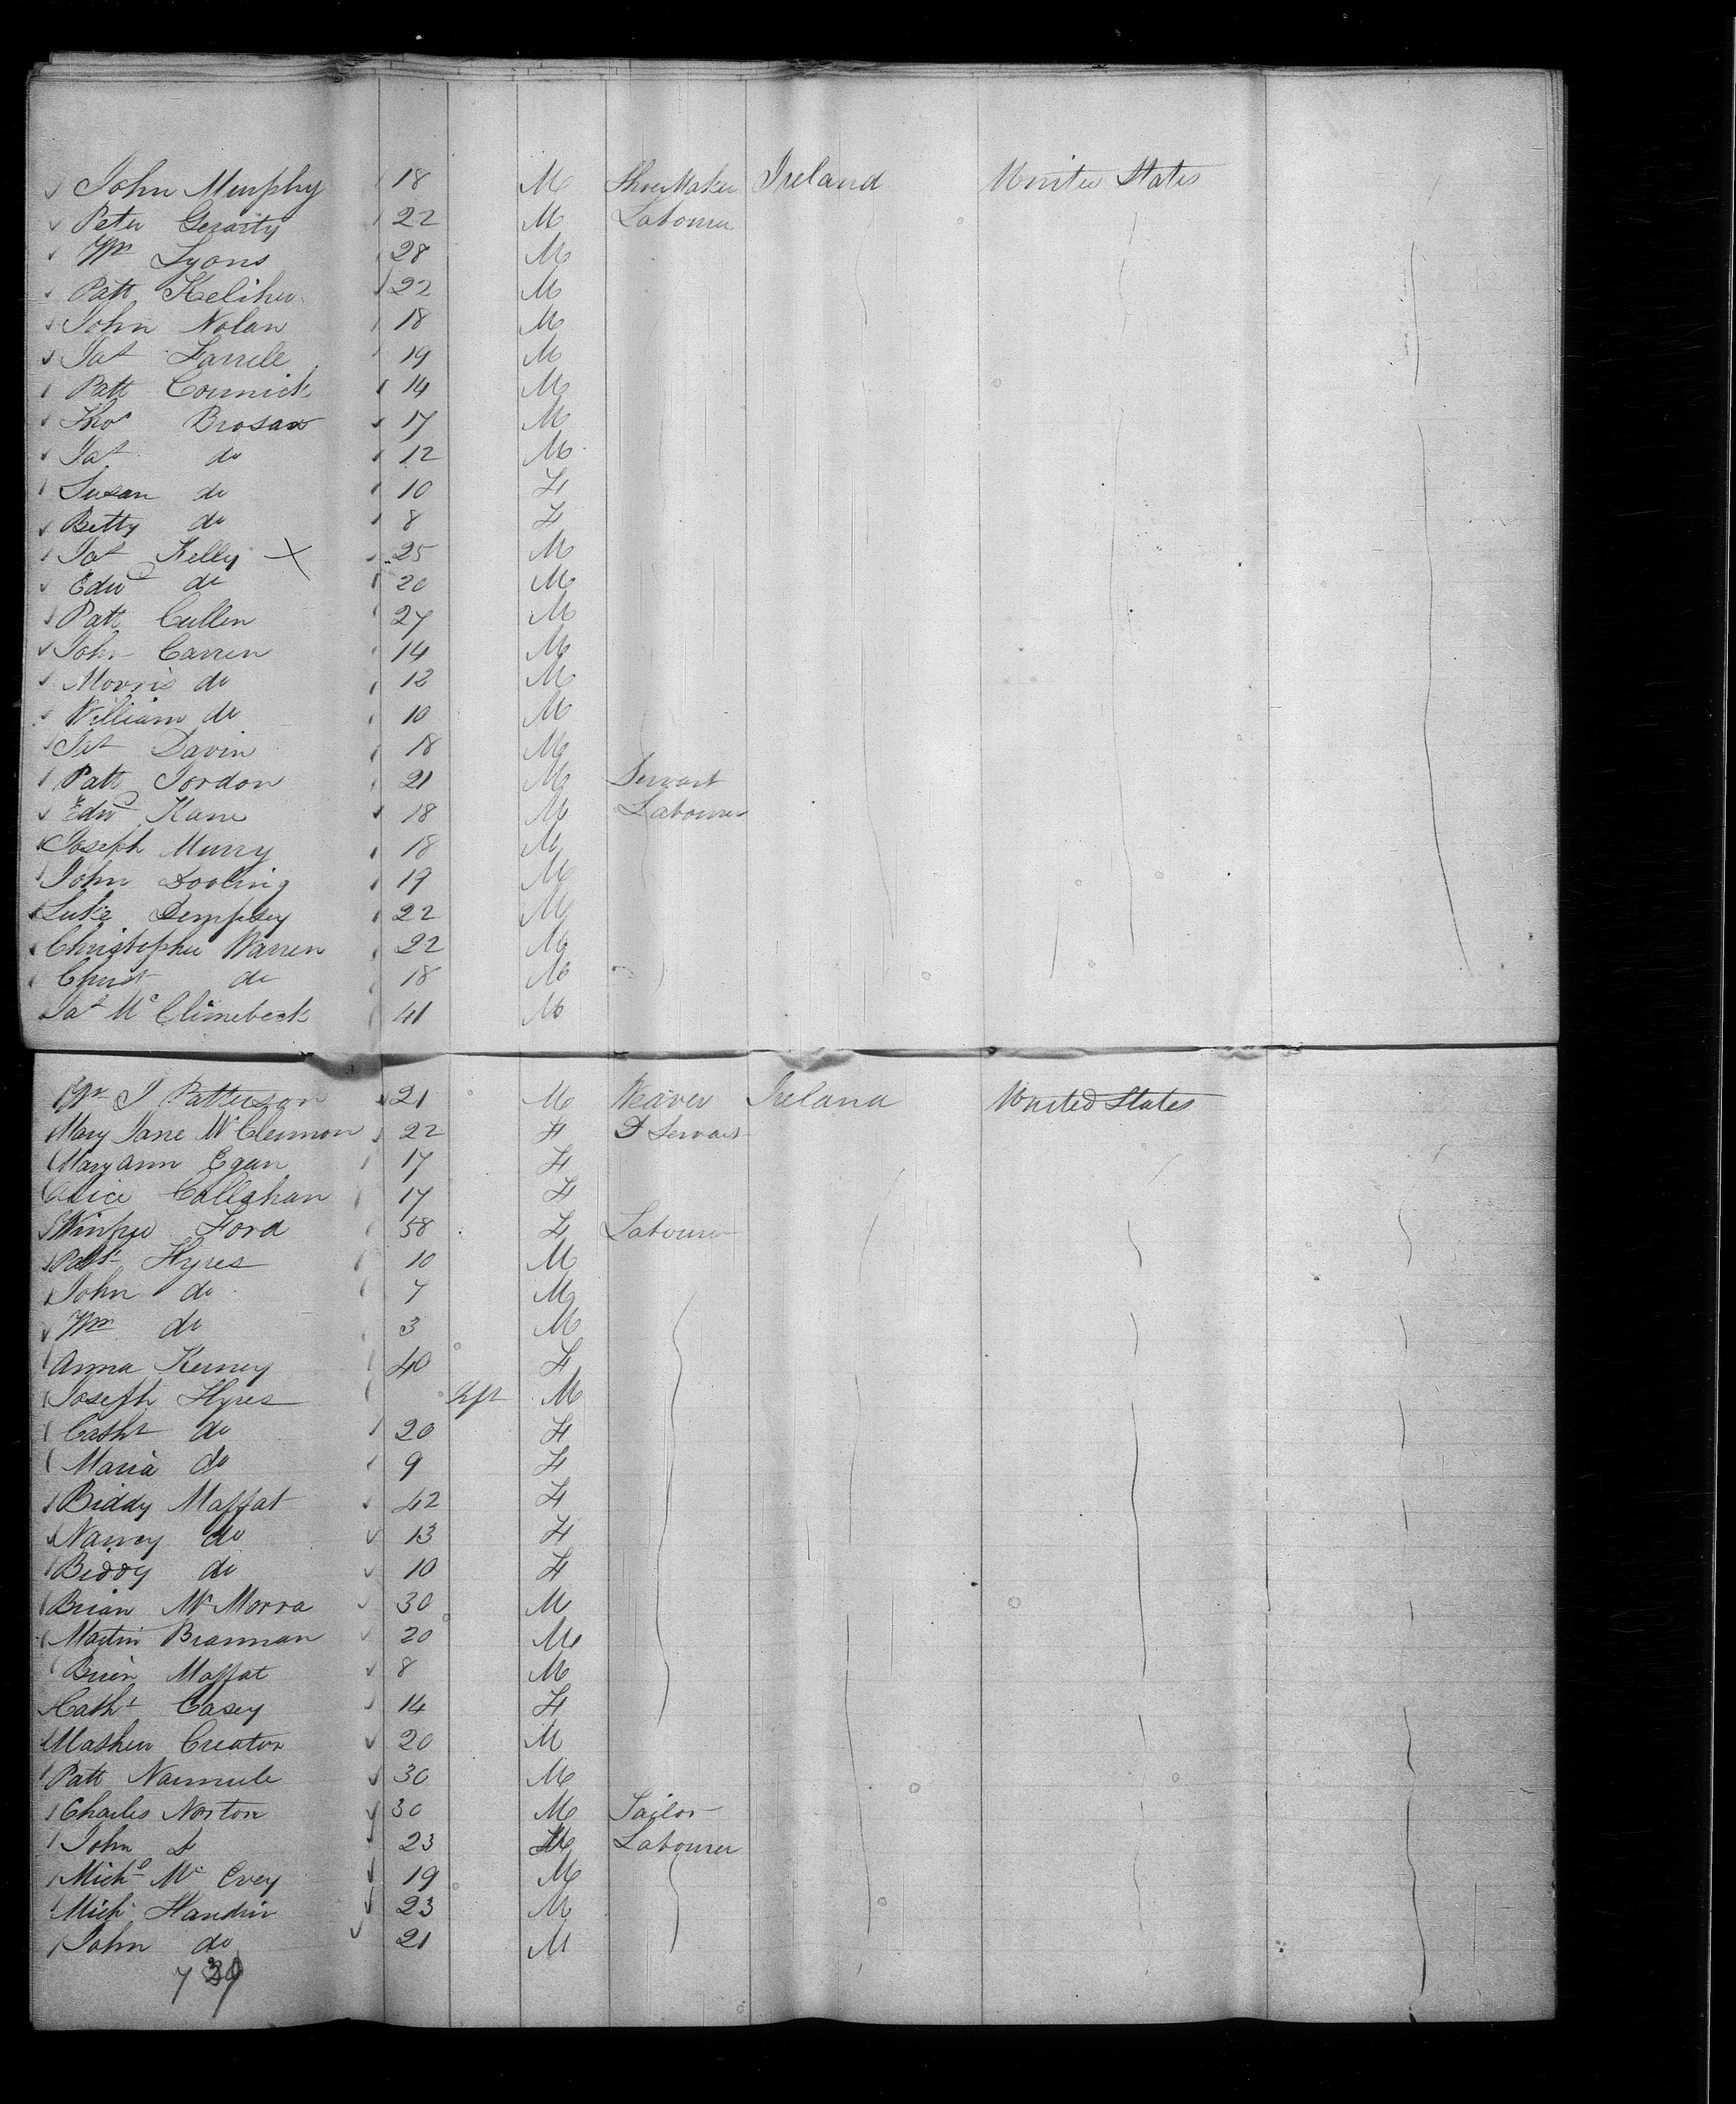 John Murphy 18 M Shoe Maker Ireland United States
Peter Gerarty 22 M Labourer
Wm Lyons 28 M
Patt Keliher 22 M
John Nolan 18 M
Jas Farrell 19 M
Patt Cormick 14 M
Thos Brosan 17 M
Jas do 12 M
Susan do 10 F
Betty do 8 F
Jas Kelly X 25 M
Edwd do 20 M
Patt Cullen 27 M
John Carren 14 M
Morris do 12 M
William do 10 M
Davin 18 M
Patt Jordon 21 M Servant
Edwd Kane 18 M Labourer
Joseph Murry 18 M
John Dooling 19 M
Luke Dempsey 22 M
Christopher Warren 22 M
Christ do 18 M
Jas Mc 41 M
Wm J Patterson 21 M Weaver Ireland United States
Mary Jane McClennon 22 F F Servant
Mary Ann Egan 17 F
Alice Callaghan 17 F
Ford 58 F Labourer
Patt Hyres 10 M
John do 7 M
Wm do 3 M
Anna Kerney 40 F
Joseph Hyres Inft M
Catht do 20 F
Maria do 9 F
Biddy Maffat 42 F
Nancy do 13 F
Biddy do 10 F
Brian McMorra 30 M
Martin Brannan 20 M
Brien Maffat 8 M
Catht Casey 14 F
Mathew Creaton 20 M
Patt 30 M
Charles Norton 30 M Tailor
John D 23 M Labourer
Michl Mc Evey 19 M
Mich Handrin 23 M
John do 21 M
739